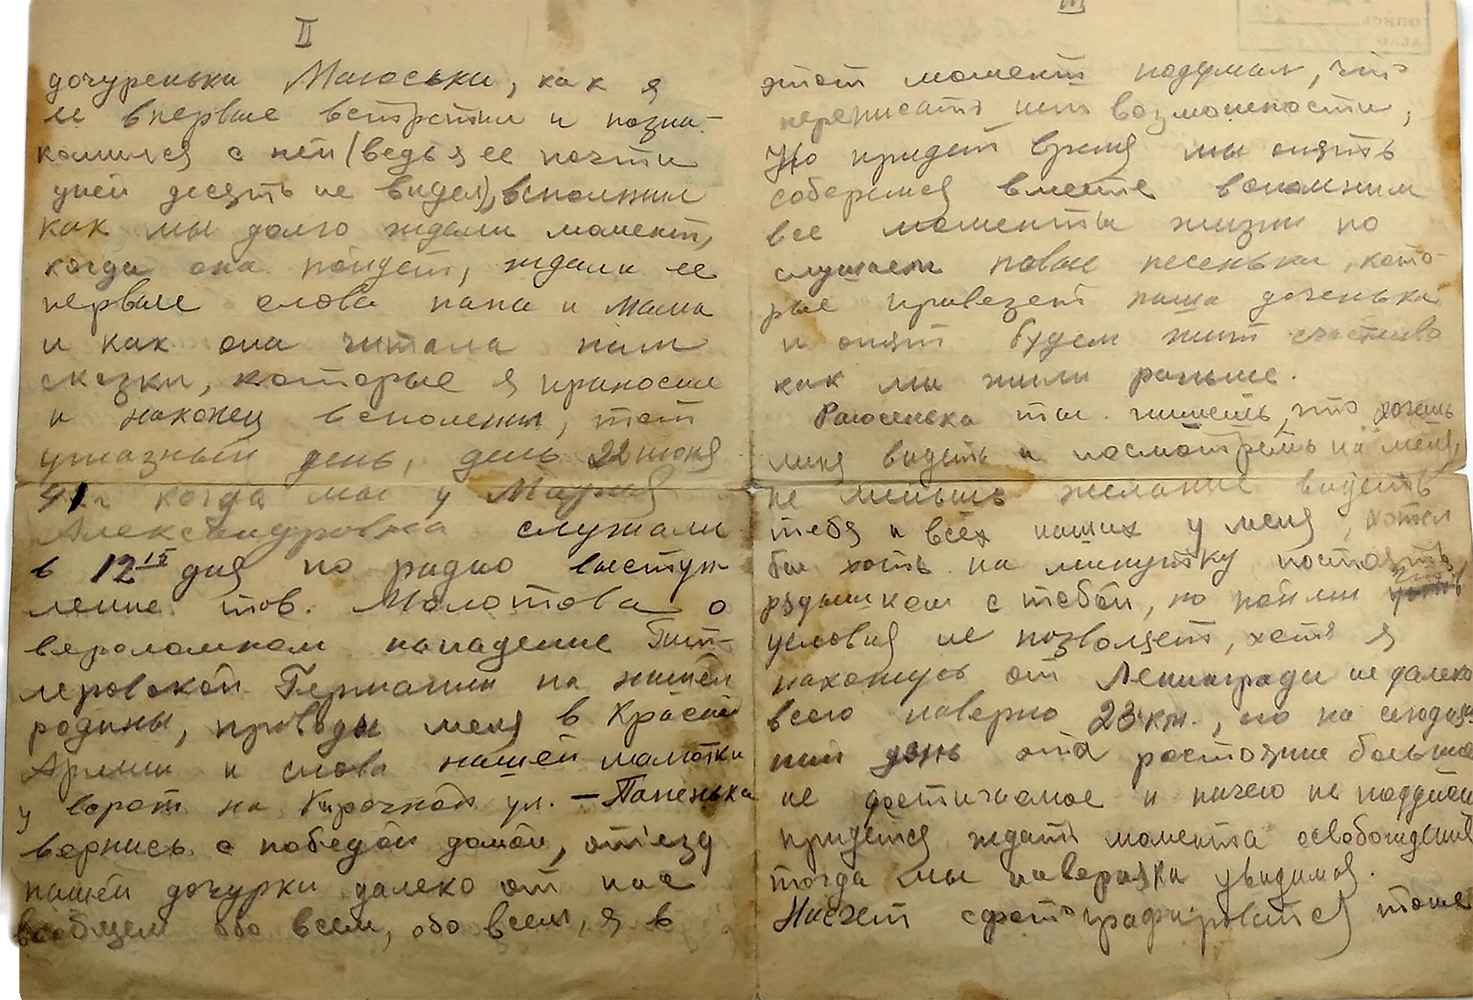 II
дочуреньки Маюськи, как я
ее впервые встретил и позна-
комился с ней (ведь я ее почти
дней десять не видел), вспомнил
как мы долго ждали момент,
когда она пойдет, ждали ее
первые слова папа и мама
и как она читала нам
сказки, которые я приносил
и наконец вспомнил, тот
ужазный день, день 22 июня
41 г когда мы у Марии
Александровна слушали
в 12 15 дня по радио выступ-
ление тов. Молотова о
вероломном нападение Гит-
леровской Германии на нашей
родины, проводы меня в Красной
Армии и слова нашей малютки
у ворот на Кирочной ул. – Папенька
вернись с победой домой, отъезд
нашей дочурки далеко от нас
вообщем обо всем, обо всем, я в
III
этот момент подумал, что
пережисать нет возможности,
Но придет время мы опять
соберемся вместе вспомним
все моменты жизни по
слушаем новые песеньки, кото-
рые привезет наша доченька
и опят будем жит счастливо
как мы жили раньше.
Раюсенька ты пишешь, что хочешь
меня видеть и посмотреть на меня,
не меньше желание видеть
тебя и всех наших у меня, хотел
бы хоть на минутку постоять
рядышком с тобой, но пойми
условия не позволяет, хотя я
нахожусь от Ленинграда не далеко
всего наверно 23 км., но на сегодняш
ний день эта ростояние большое
не достигаемое и ничего не поделаешь
придется ждать момента освобождения
тогда мы наверняка увидимся.
Насчет сфотографироватся тоже